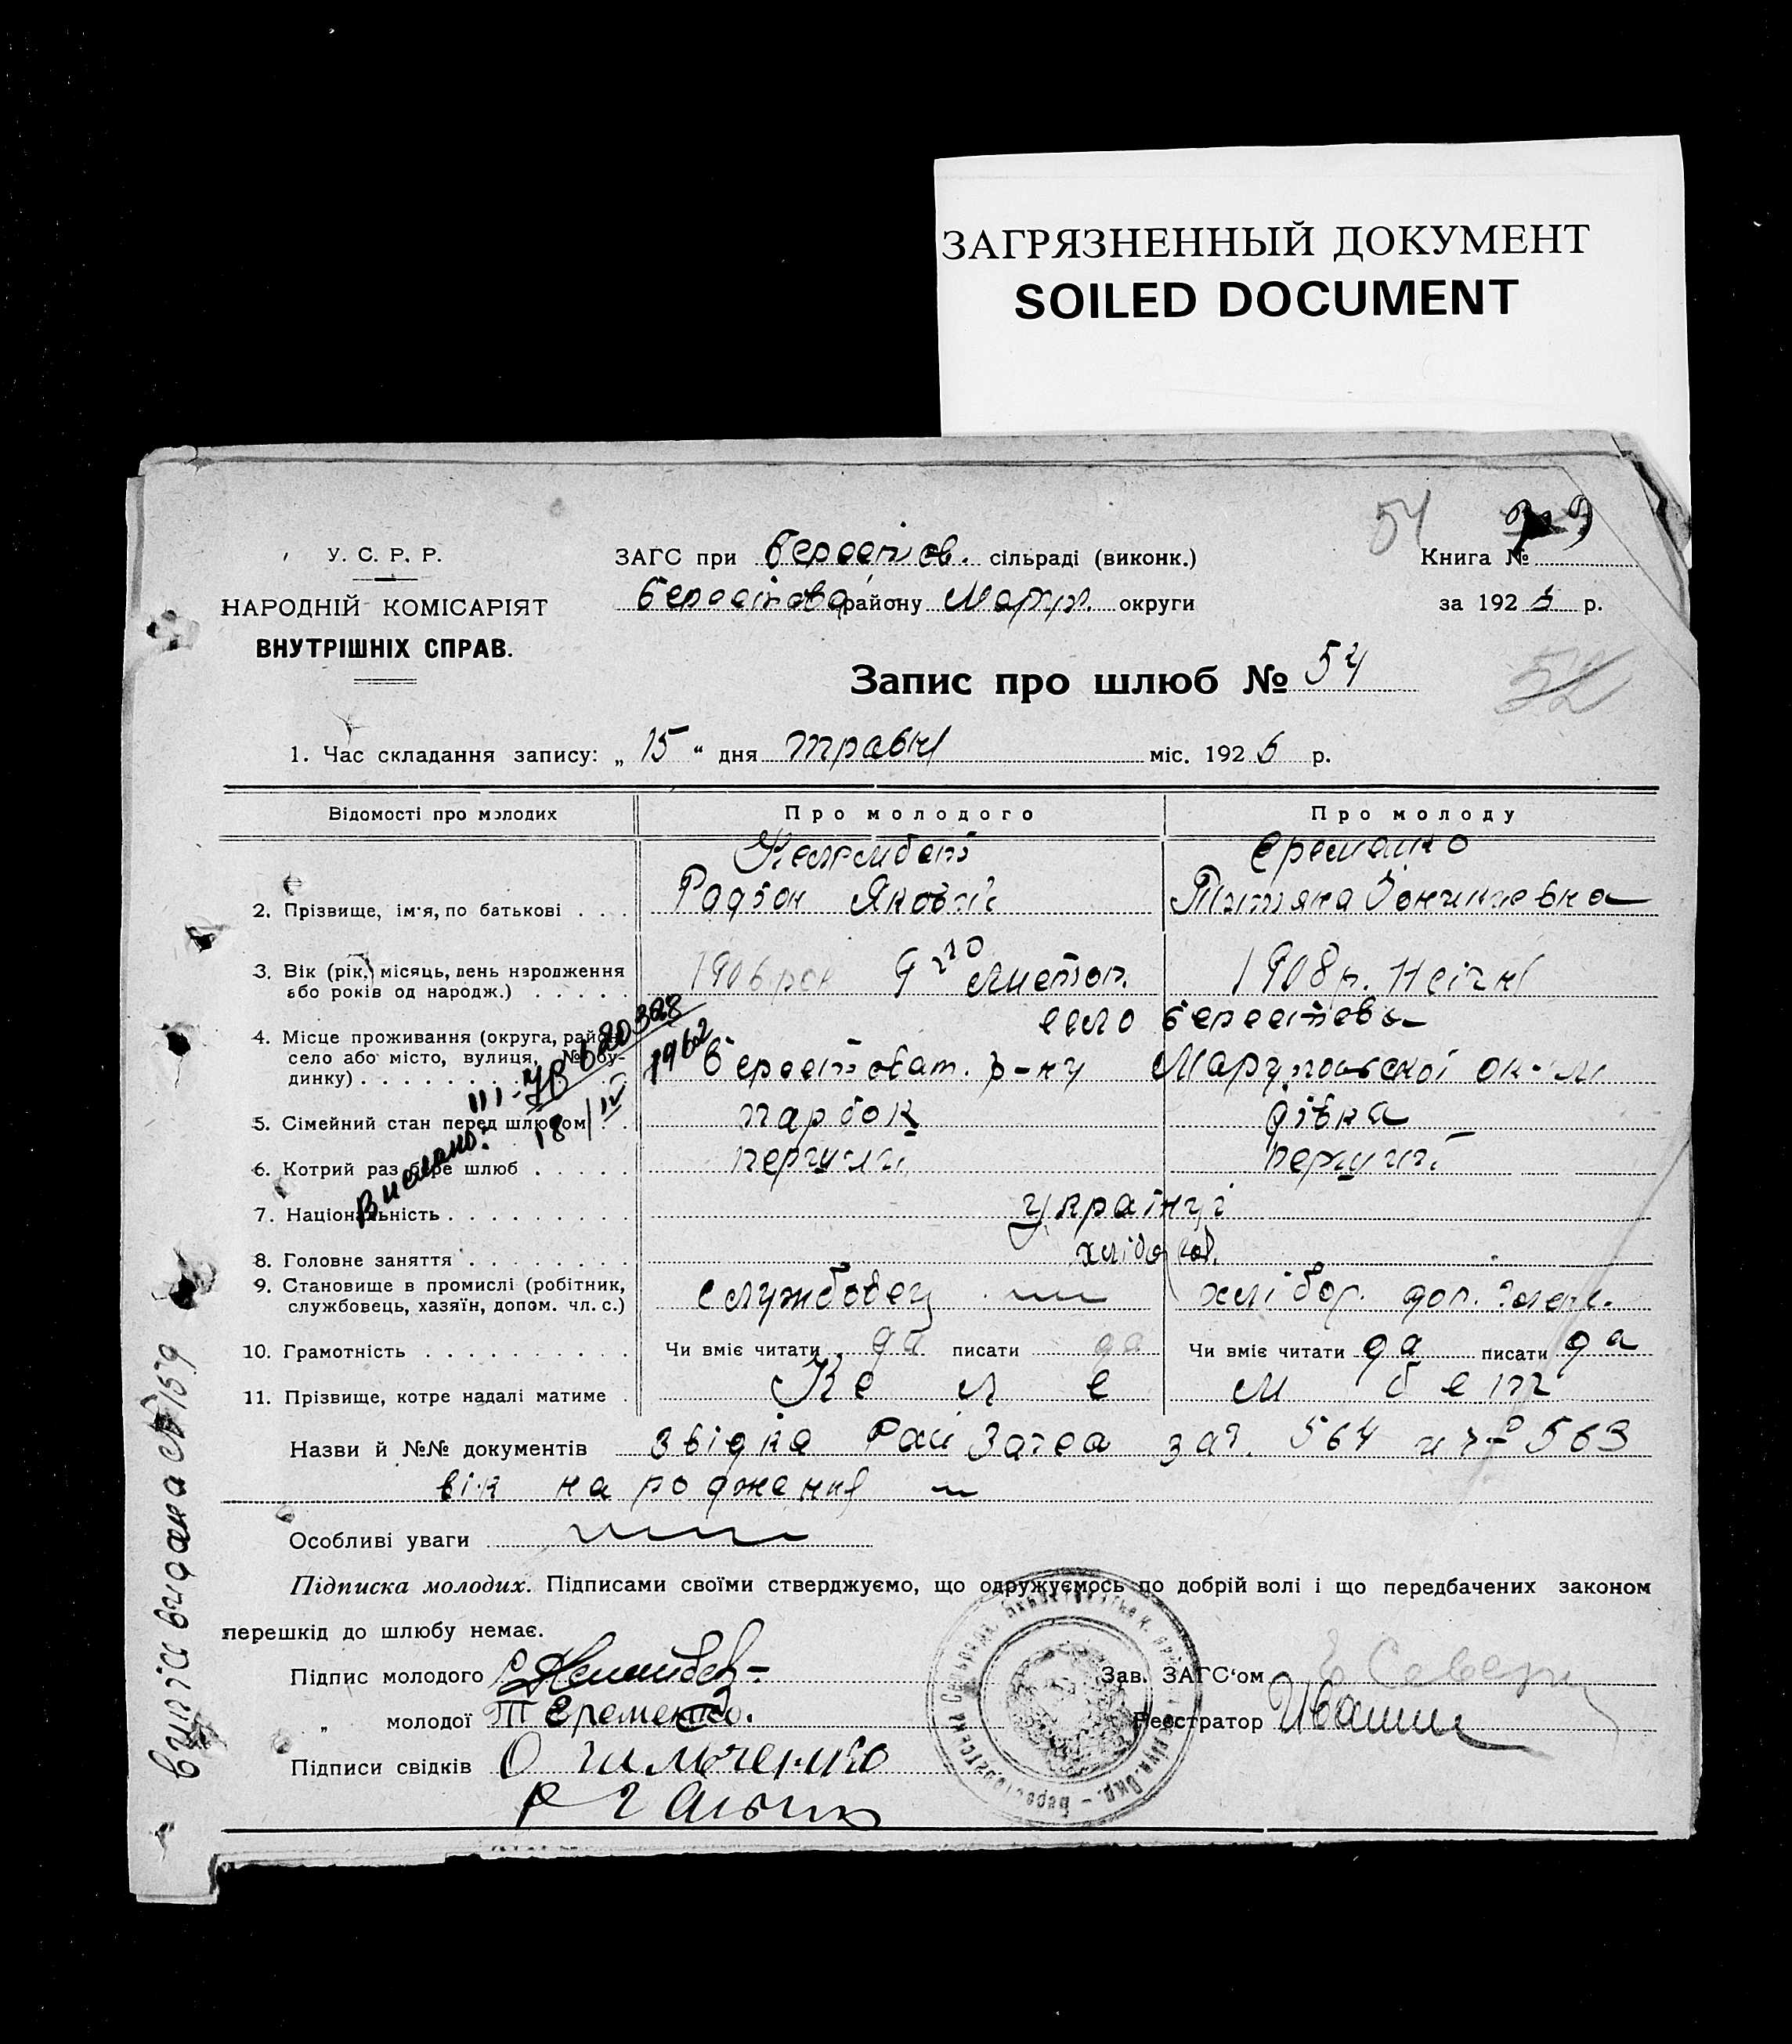 ЗАГРЯЗНЕННЫЙ ДОКУМЕНТ
SOILED DOCUMENT
54
У. С. Р. Р.
НАРОДНІЙ КОМІСАРІЯТ
ВНУТРІШНІХ СПРАВ.
ЗАГС при Берестов. сільраді (виконк.)
Берестова району Маруп. округи
Книга №
за 1926 р.
Запис про шлюб № 54
52
1. Час складання запису: „ 15 “ дня травня міс. 1926 р.
Відомості про молодих Про молодого Про молоду
Келембет Еременко
2. Прізвище, ім'я, по батькові . . . Радион Яковл. Титяна
3. Вік (рік, місяць, день народження
або років од народж.) . . . . . 1906 рок 9го листоп. 1908 р. 11 січня
село Берестова
4. Місце проживання (округа, район,
село або місто, вулиця, № бу-
динку) . . . . . Берестоват. р-ну Марупольскоі
5. Сімейний стан перед шлюбом . . парбок дівка
6. Котрий раз бере шлюб . . . . . перший перший
7. Національність . . . . . . . . . українці
8. Головне заняття . . . . . . . . хлібороб.
9. Становище в промислі (робітник,
службовець, хазяїн, допом. чл. с.) службовец хлібор. доп.
10. Грамотність . . . . . . . . . . Чи вміє читати да писати да Чи вміє читати да писати да
11. Прізвище, котре надалі матиме . Келембет
Назви й №№ документів звідка Рай Загса за №. 564 и № 563
вік народження
Особливі уваги
Підписка молодих. Підписами своїми стверджуємо, що одружуємось по добрій волі і що передбачених законом
перешкід до шлюбу немає.
Підпис молодого Келембет
„ молодої Т Еременко.
Підписи свідків О
Зав. ЗАГС'ом
Реєстратор Ивашин
Виписано: III-УВ 620328
18/IV 1962
видана № 159